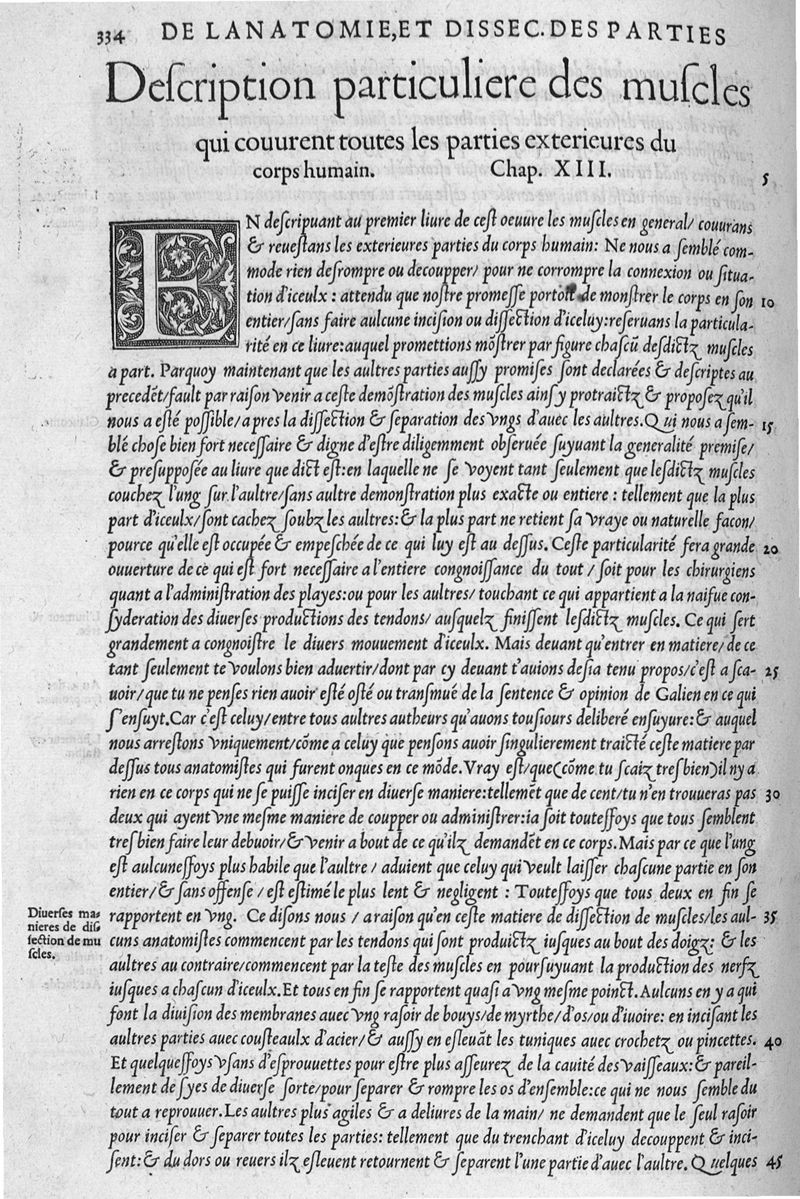 334 DE LANATOMIE,ET DISSEC. DES PARTIES
Deſcription particuliere des muſcles
qui couurent toutes les parties exterieures du
corps humain. Chap. XIII.
5
EN deſcripuant au premier liure de ceſt oeuure les muſcles en general/ couurans
& reueſtans les exterieures parties du corps humain: Ne nous a ſemblé com-
mode rien deſrompre ou decoupper/ pour ne corrompre la connexion ou ſitua-
tion d'iceulx : attendu que noſtre promeſſe portoit de monſtrer le corps en ſon 10
entier/ſans faire aulcune inciſion ou diſſection d'iceluy:reſeruans la particula-
rité en ce liure:auquel promettions mõſtrer par figure chaſcũ deſdictz muſcles
a part. Parquoy maintenant que les aultres parties auſſy promiſes ſont declarées & deſcriptes au
precedẽt/fault par raiſon venir a ceſte demõſtration des muſcles ainſy protraictz & propoſez qu'il
nous a eſté poſſible/a pres la diſſection & ſeparation des vngs d'auec les aultres.Qui nous a ſem- 15
blé choſe bien fort neceſſaire & digne d'eſtre diligemment obſeruée ſuyuant la generalité premiſe/
& preſuppoſée au liure que dict eſt:en laquelle ne ſe voyent tant ſeulement que leſdictz muſcles
couchez l'ung ſur l'aultre/ſans aultre demonſtration plus exacte ou entiere : tellement que la plus
part d'iceulx/ſont cachez ſoubz les aultres:& la plus part ne retient ſa vraye ou naturelle facon/
pource qu'elle eſt occupée & empeſchée de ce qui luy eſt au deſſus. Ceſte particularité fera grande 20
ouuerture de ce qui eſt fort neceſſaire a l'entiere congnoiſſance du tout / ſoit pour les chirurgiens
quant a l'adminiſtration des playes:ou pour les aultres/ touchant ce qui appartient a la naifue con-
ſyderation des diuerſes productions des tendons/ auſquelz finiſſent leſdictz muſcles. Ce qui ſert
grandement a congnoiſtre le diuers mouuement d'iceulx. Mais deuant qu'entrer en matiere/de ce
tant ſeulement te voulons bien aduertir/dont par cy deuant t'auions deſia tenu propos/c'eſt a ſca- 25
uoir/que tu ne penſes rien auoir eſté oſté ou tranſmué de la ſentence & opinion de Galien en ce qui
ſ'enſuyt.Car c'eſt celuy/entre tous aultres autheurs qu'auons touſiours deliberé enſuyure:& auquel
nous arreſtons vniquement/cõme a celuy que penſons auoir ſingulierement traicté ceſte matiere par
deſſus tous anatomiſtes qui furent onques en ce mõde.Vray eſt/que(cõme tu ſcaiz treſbien)il ny a
rien en ce corps qui ne ſe puiſſe inciſer en diuerſe maniere:tellemẽt que de cent/tu n'en trouueras pas 30
deux qui ayent vne meſme maniere de coupper ou adminiſtrer:ia ſoit touteſſoys que tous ſemblent
treſbien faire leur debuoir/& venir a bout de ce qu'ilz demandẽt en ce corps.Mais par ce que l'ung
eſt aulcuneſſoys plus habile que l'aultre / aduient que celuy qui veult laiſſer chaſcune partie en ſon
entier/& ſans offenſe / eſt eſtimé le plus lent & negligent : Touteſſoys que tous deux en fin ſe
rapportent en vng. Ce diſons nous / a raiſon qu'en ceſte matiere de diſſection de muſcles/les aul- 35
Diuerſes ma
nieres de diſ
ſection de mu
ſcles.
cuns anatomiſtes commencent par les tendons qui ſont produictz iuſques au bout des doigz: & les
aultres au contraire/commencent par la teſte des muſcles en pourſuyuant la production des nerfz
iuſques a chaſcun d'iceulx.Et tous en fin ſe rapportent quaſi a vng meſme poinct.Aulcuns en y a qui
font la diuiſion des membranes auec vng raſoir de bouys/de myrthe/d'os/ou d'iuoire: en inciſant les
aultres parties auec couſteaulx d'acier/& auſſy en eſleuãt les tuniques auec crochetz ou pincettes. 40
Et quelqueſſoys vſans d'eſprouuettes pour eſtre plus aſſeurez de la cauité des vaiſſeaux:& pareil-
lement de ſyes de diuerſe ſorte/pour ſeparer & rompre les os d'enſemble:ce qui ne nous ſemble du
tout a reprouuer.Les aultres plus agiles & a deliures de la main/ ne demandent que le ſeul raſoir
pour inciſer & ſeparer toutes les parties: tellement que du trenchant d'iceluy decouppent & inci-
ſent:& du dors ou reuers ilz eſleuent retournent & ſeparent l'une partie d'auec l'aultre. Quelques 45